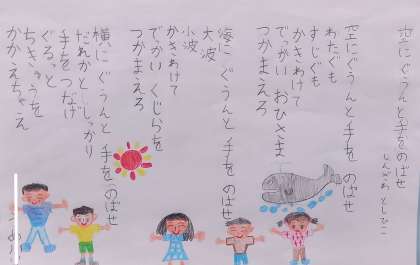 空にぐうんと手をのばせ
しんざわ としひこ
空にぐうんと手をのばせ
わたぐも
すじぐも
かきわけて
でっかいおひさま
つかまえろ
海にぐうんと手をのばせ
大波
小波
かきわけて
でかいくじらを
つかまえろ
横にぐうんと手をのばせ
だれかとしっかり
手をつなげ
ぐるっと
ちきゅうを
かかえちゃえ